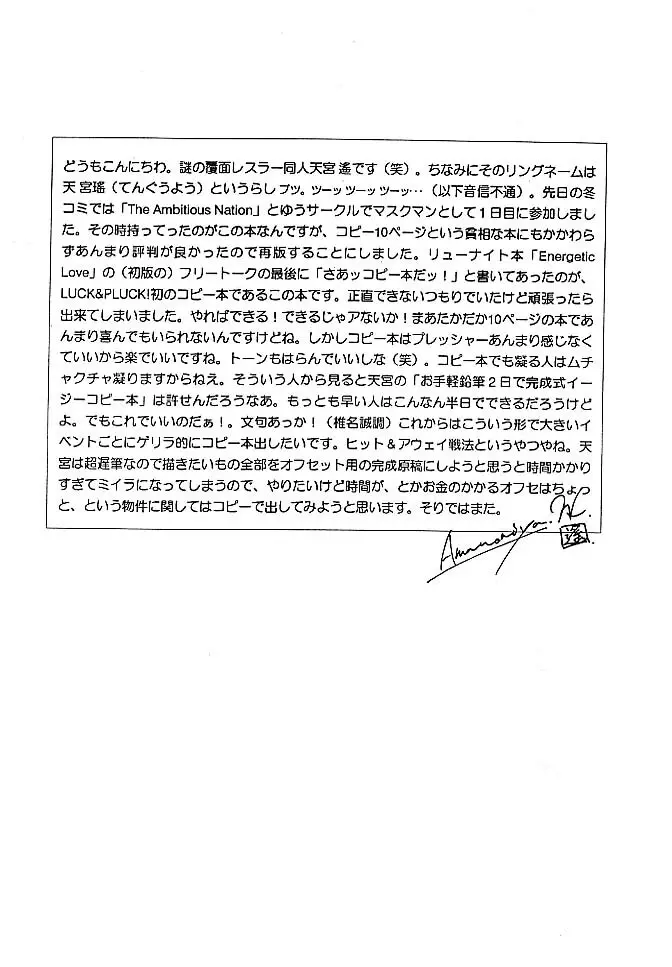 どうもこんにちわ。謎の覆面レスラー同人天宮遙です（笑）。ちなみにそのリングネームは
天宮瑤（てんぐうよう）というらし プツ。ツーッ ツーッ ツーッ…（以下音信不通）。先日の冬
コミでは「The Ambitious Nation」とゆうサークルでマスクマンとして１日目に参加しまし
た。その時持ってったのがこの本なんですが、コピー10ページという貧相な本にもかかわら
ずあんまり評判が良かったので再版することにしました。リューナイト本「Energetic
Love」の（初版の）フリートークの最後に「さあッコピー本だッ！」と書いてあったのが、
LUCK&PLUCK!初のコピー本であるこの本です。正直できないつもりでいたけど頑張ったら
出来てしまいました。やればできる！できるじゃアないか！まあたかだか10ページの本であ
んまり喜んでもいられないんですけどね。しかしコピー本はプレッシャーあんまり感じなく
ていいから楽でいいですね。トーンもはらんでいいしな（笑）。コピー本でも凝る人はムチ
ャクチャ凝りますからねえ。そういう人から見ると天宮の「お手軽鉛筆２日で完成式イー
ジーコピー本」は許せんだろうなあ。もっとも早い人はこんなん半日でできるだろうけど
よ。でもこれでいいのだぁ！。文句あっか！（椎名誠調）これからはこういう形で大きいイ
ベントごとにゲリラ的にコピー本出したいです。ヒット＆アウェイ戦法というやつやね。天
宮は超遅筆なので描きたいもの全部をオフセット用の完成原稿にしようと思うと時間かかり
すぎてミイラになってしまうので、やりたいけど時間が、とかお金のかかるオフセはちょっ
と、という物件に関してはコピーで出してみようと思います。そりではまた。